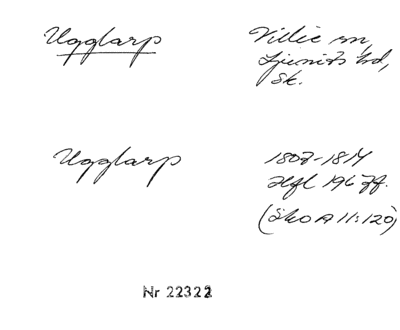 Ugglarp
Villie sn,
Ljunits hd,
Sk.
Ugglarp
1807-1814
Hfl 196 ff.
(SkoA 11:120)
Nr 22322